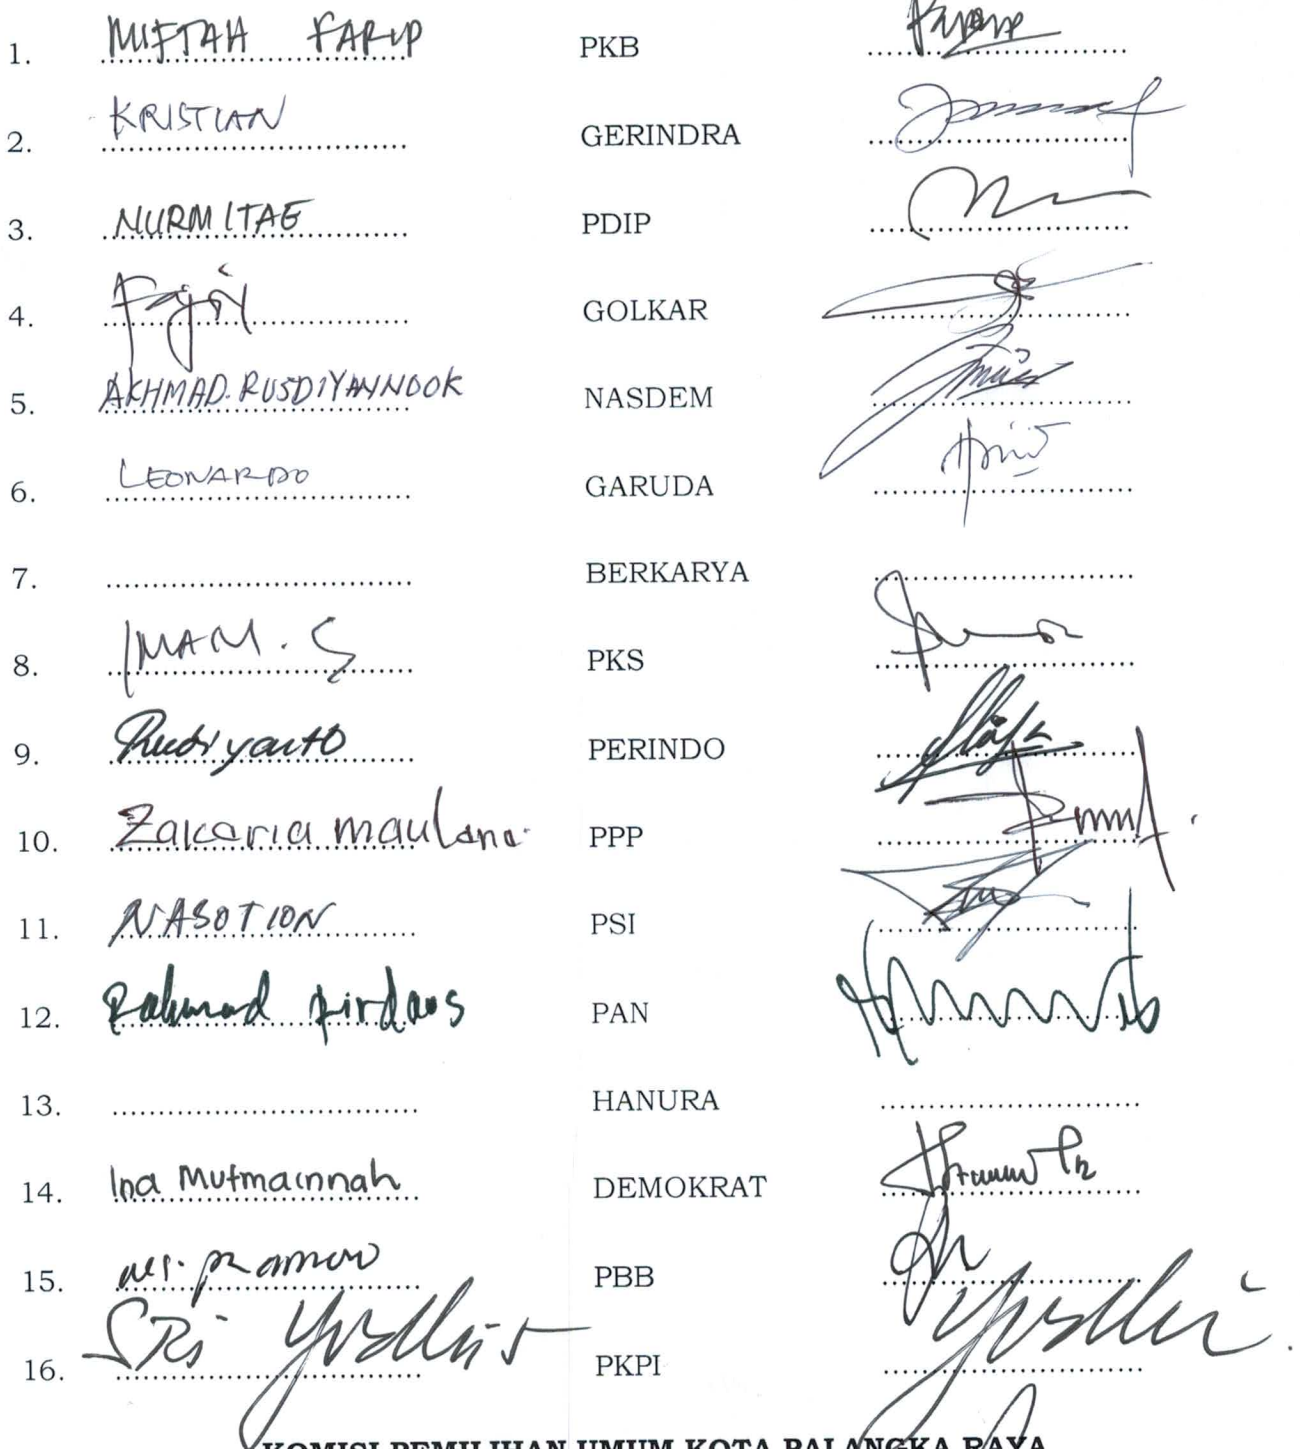 1. MIFTAH FARID PKB
2. KRISTIAN GERINDRA
3. NURMITAE PDIP
4. Fajri GOLKAR
5. AKHMAD. RUSDIYANNOOR NASDEM
6. LEONARDO GARUDA
7. BERKARYA
8. IMAM. S PKS
9. Rudiyanto PERINDO
10. Zakaria maulana PPP
11. NASOTION PSI
12. Rahmad firdaus PAN
13. HANURA
14. Ina Mutmainnah DEMOKRAT
15. PBB
16. SRi PKPI
KOMISI PEMILIHAN UMUM KOTA PALANGKA RAYA